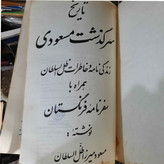 تاریخ
سرگذشت مسعودی
زندگی نامه و خاطرات ظل السلطان
همراه با
سفرنامه فرنگستان
نوشته:
مسعود میرزا ظل السلطان